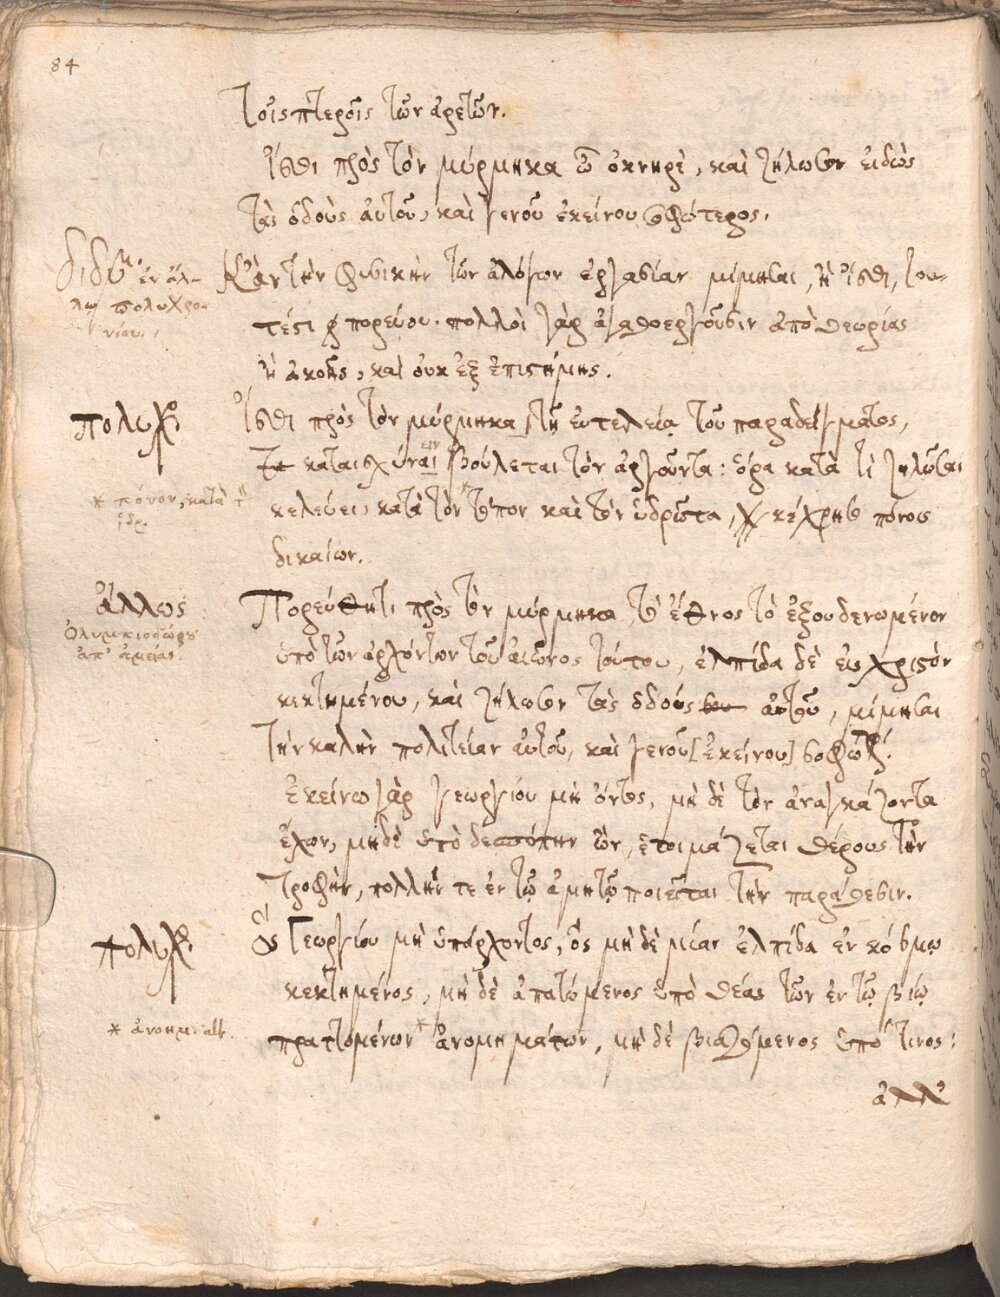 84
τοῖς πτεροῖς τῶν ἀρετῶν.
ἴσθι πρὸς τὸν μύρμηκα ὦ ὀκνηρὲ, καὶ ζήλωσον εἰδὼς
τὰς ὁδοὺς αὐτοῦ, καὶ γενοῦ ἐκείνου σοφώτερος.
διδύ. ἐν ἄλλῳ πολυχρονίου.
Κἂν τὴν φυσικὴν τῶν ἀλόγων ἐργασίαν μίμησαι, ἢ ἴσθι, του-
τέστι πορεύου. πολλοὶ γὰρ ἀγαθοεργοῦσιν ἀπὸ θεωρίας
ἢ ἀκοῆς, καὶ οὐκ ἐξ ἐπιστήμης.
πολυχρο
ἴσθι πρὸς τὸν μύρμηκα τῇ εὐτελείᾳ τοῦ παραδείγματος,
καταισχύναι ειν βούλεται τὸν ἀργοῦντα: ὅρα κατὰ τί ζηλῶσαι
* πόνον, κατὰ τ ἱδρ.
κελεύει, κατὰ τὸν * τύπον καὶ τὸν ὑδρῶτα, κέχρησο πόνοις
δικαίων.
ἄλλως
Ὀλυμπιοδώρου
Πορεύθητι πρὸς τὸν μύρμηκα τὸ ἔθνος τὸ ἐξουδενωμένον
ὑπὸ τῶν ἀρχόντων τοῦ αἰῶνος τούτου, ἐλπίδα δὲ εἰς χριστὸν
κεκτημένου, καὶ ζήλωσον τὰς ὁδοὺς αὐτοῦ, μίμησαι
τὴν καλὴν πολιτείαν αὐτοῦ, καὶ γενοῦ [ἐκείνου] σοφώτε.
ἐκείνῳ γὰρ γεωργίου μὴ ὄντος, μὴ δὲ τὸν ἀναγκάζοντα
ἔχων, μηδὲ ὑπὸ δεσπότην ὢν, ἑτοιμάζεται θέρους τὴν
τροφὴν, πολλήν τε ἐν τῷ ἀμητῷ ποιεῖται τὴν παράθεσιν.
πολυχρο
Ὃς Γεωργίου μὴ ὑπάρχοντος, ὃς μὴ δὲ μίαν ἐλπίδα ἐν κόσμῳ
κεκτημένος, μὴ δὲ ἀπατώμενος ὑπὸ θέας τῶν ἐν τῷ βίῳ
* ἀνοημ. alt.
πραττομένων * ἀνομημάτων, μὴ δὲ βιαζόμενος ὑπό τινος:
ἀλλ'